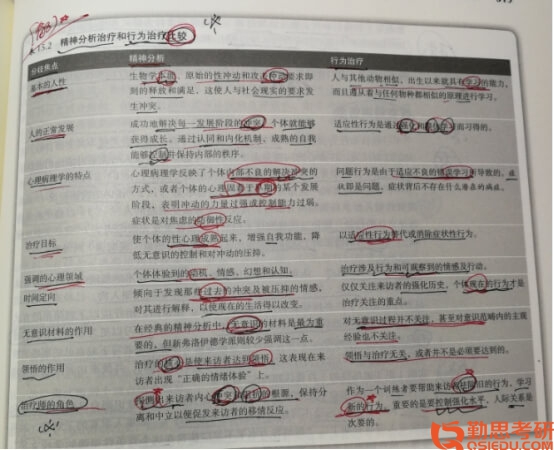 15.2 精神分析治疗和行为治疗比较
分歧焦点 精神分析 行为治疗
基本的人性 生物学本能,原始的性冲动和攻击冲动要求即 人与其他动物相似,出生以来就具有学习的能力,
到的释放和满足,这使人与社会现实的要求发 而且遵从着与任何物种都相似的原理进行学习。
生冲突。
人的正常发展 成功地解决每一发展阶段的冲突,个体就能够 适应性行为是通过强化和模仿学而习得的。
获得成长。通过认同和内化机制,成熟的自我
能够控制并保持内部的秩序。
心理病理学的特点 心理病理学反映了个体内部不良的解决冲突的 问题行为是由于适应不良的错误学习所导致的。症
方式,或者个体的心理固着于早期的某个发展 状即是问题,症状背后不存在什么潜在的病症。
阶段,表明冲动的力量过强或控制能力过弱。
症状是对焦虑的防御性反应。
治疗目标 使个体的性心理成熟起来,增强自我功能,降 以适应性行为替代或消除症状性行为。
低无意识的控制和对冲动的压抑。
强调的心理领域 个体体验到的动机、情感、幻想和认知。 治疗涉及行为和可观察到的情感及行动。
时间定向 倾向于发现那些过去的冲突及被压抑的情感, 仅仅关注来访者的强化历史,个体现在的行为才是
对其进行解释,以使现在的生活得以改变。 治疗关注的重点。
无意识材料的作用 在经典的精神分析中,无意识的材料是最为重 对无意识过程并不关注,甚至对意识范畴内的主观
要的,但新弗洛伊德学派则较少强调这一点。 经验也不关注。
领悟的作用 治疗的核心是使来访者达到领悟,这表现在来 领悟与治疗无关,或者并不是必须要达到的。
访者出现“正确的情绪体验”上。
治疗师的角色 来访者内心冲突的根源,保持分 作为一个训练者要帮助来访者旧的行为,学习
离和中立以便促发来访者的移情反应。 新的行为。重要的是要控制强化水平,人际关系是
次要的。
勤思考研
QSIEDU.COM